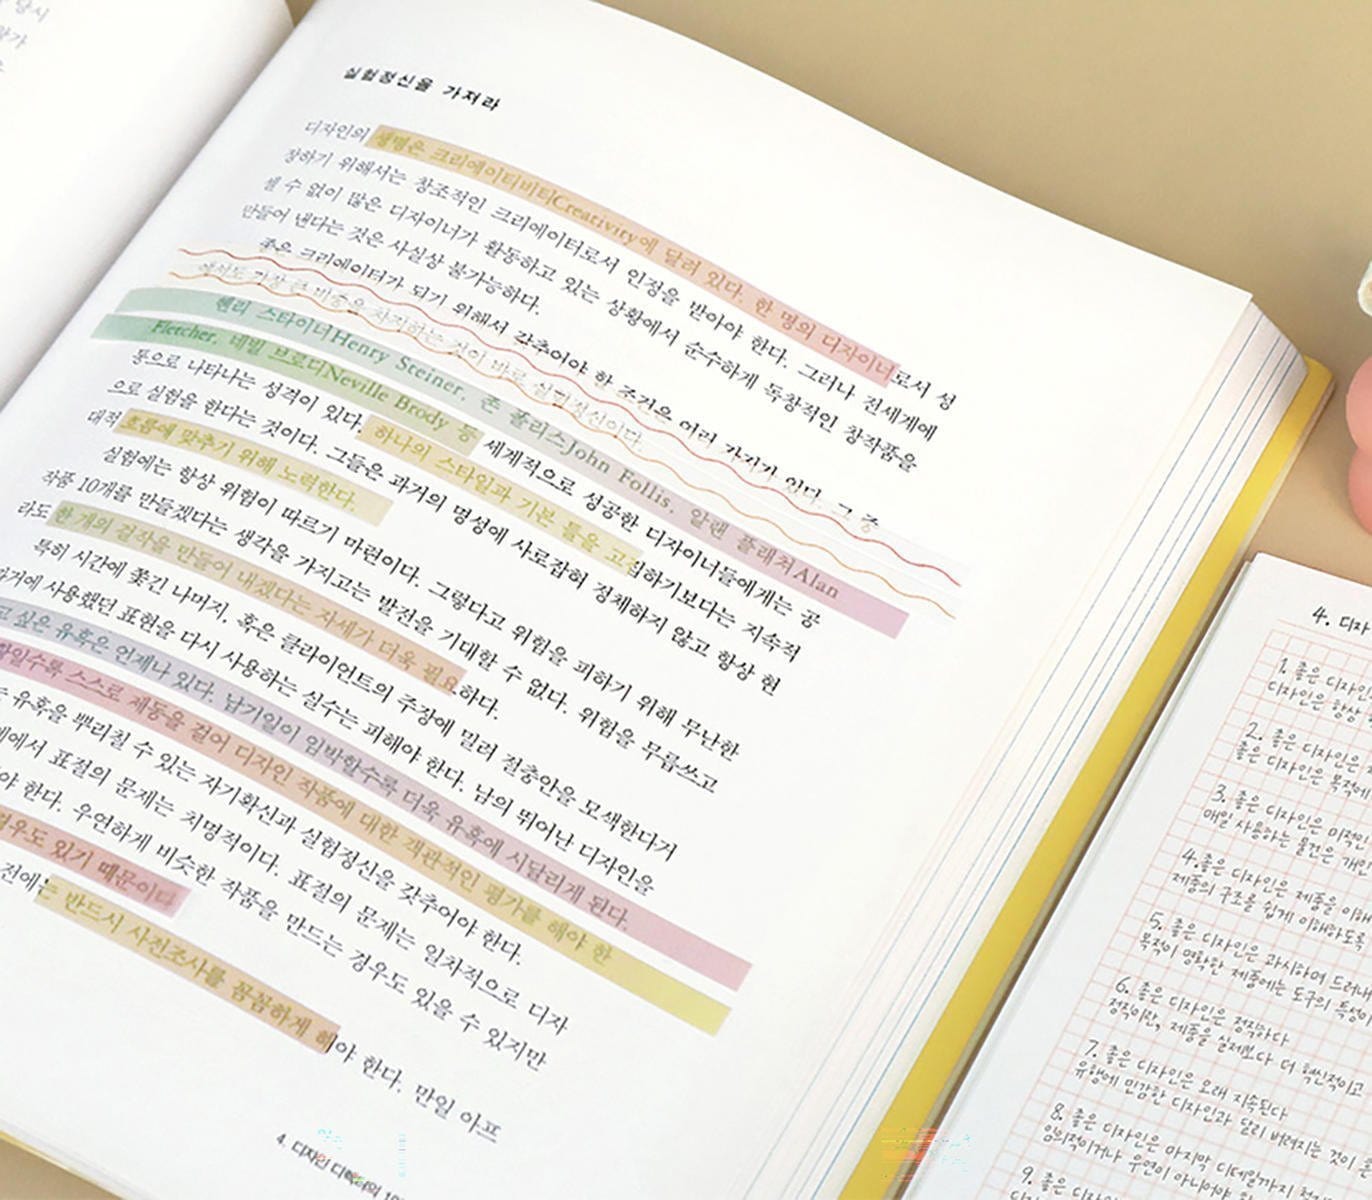 당시
실험정신을 가져라
디자인의 생명은 크리에이티비티Creativity에 달려 있다. 한 명의 디자이너로서 성
장하기 위해서는 창조적인 크리에이터로서 인정을 받아야 한다. 그러나 전세계에
셀 수 없이 많은 디자이너가 활동하고 있는 상황에서 순수하게 독창적인 창작품을
만들어 낸다는 것은 사실상 불가능하다.
좋은 크리에이터가 되기 위해서 갖추어야 할 조건은 여러 가지가 있다. 그 중
에서도 가장 큰 비중을 차지하는 것이 바로 실험정신이다.
헨리 스타이너Henry Steiner, 존 폴리스John Follis, 알랜 플래쳐Alan
Fletcher, 네빌 브로디Neville Brody 등 세계적으로 성공한 디자이너들에게는 공
통으로 나타나는 성격이 있다. 하나의 스타일과 기본 틀을 고집하기보다는 지속적
으로 실험을 한다는 것이다. 그들은 과거의 명성에 사로잡혀 정체하지 않고 항상 현
대적 흐름에 맞추기 위해 노력한다.
실험에는 항상 위험이 따르기 마련이다. 그렇다고 위험을 피하기 위해 무난한
작품 10개를 만들겠다는 생각을 가지고는 발전을 기대할 수 없다. 위험을 무릅쓰고
라도 한 개의 걸작을 만들어 내겠다는 자세가 더욱 필요하다.
특히 시간에 쫓긴 나머지, 혹은 클라이언트의 주장에 밀려 절충안을 모색한다거
과거에 사용했던 표현을 다시 사용하는 실수는 피해야 한다. 남의 뛰어난 디자인을
고 싶은 유혹은 언제나 있다. 납기일이 임박할수록 더욱 유혹에 시달리게 된다.
할일수록 스스로 제동을 걸어 디자인 작품에 대한 객관적인 평가를 해야 한
유혹을 뿌리칠 수 있는 자기확신과 실험정신을 갖추어야 한다.
에서 표절의 문제는 치명적이다. 표절의 문제는 일차적으로 디자
야 한다. 우연하게 비슷한 작품을 만드는 경우도 있을 수 있지만
경우도 있기 때문이다
전에는 반드시 사전조사를 꼼꼼하게 해야 한다. 만일 아프
4. 디자인
4. 디자
1. 좋은 디자인
디자인은 항상
2. 좋은 디자인은
좋은 디자인은 목적에
3. 좋은 디자인은 미적인
매일 사용하는 물건은 개인
4. 좋은 디자인은 제품을 이해
제품의 구조를 쉽게 이해하도록
5. 좋은 디자인은 과시하며 드러내
목적이 명확한 제품에는 도구의 특성이
6. 좋은 디자인은 정직하다
정직이란, 제품을 실제보다 더 혁신적이고
7. 좋은 디자인은 오래 지속된다
유행에 민감한 디자인과 달리 버려지는 것이
8. 좋은 디자인은 마지막 디테일까지
임의적이거나 우연이 아니어야
9. 좋은